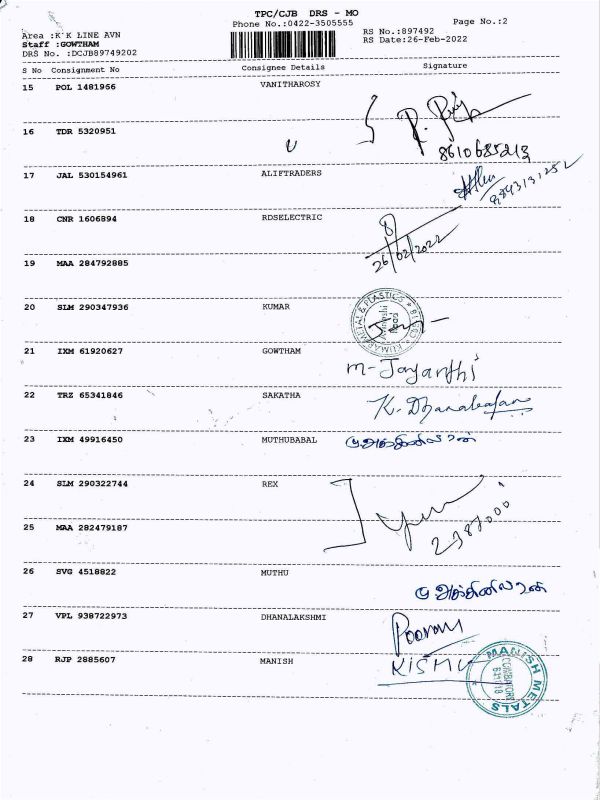 TPC/CJB DRS - MO
Phone No.:0422-3505555
Page No.:2
Area :K K LINE AVN
RS No.:897492
Staff :GOWTHAM
RS Date:26-Feb-2022
DRS No. :DCJB89749202
S No Consignment No Consignee Details Signature
15 POL 1481966 VANITHAROSY
R.
8610685213
16 TDR 5320951
17 JAL 530154961 ALIFTRADERS
18 CNR 1606894 RDSELECTRIC
26/02/2022
19 MAA 284792885
20 SLM 290347936 KUMAR
21 IXM 61920627 GOWTHAM
M-Jayanthi
22 TRZ 65341846 SAKATHA
K. Dhanabalan
23 IXM 49916450 MUTHUBABAL
24 SLM 290322744 REX
25 MAA 282479187
26 SVG 4518822 MUTHU
27 VPL 938722973 DHANALAKSHMI
28 RJP 2885607 MANISH
MANISH METALS